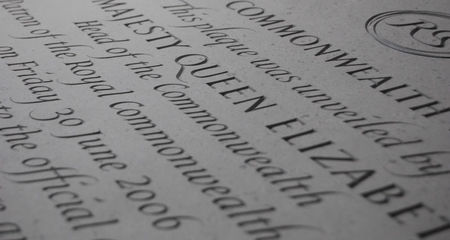 COMMONWEALTH
This plaque was unveiled by
MAJESTY QUEEN ELIZABET
Head of the Commonwealth
Patron of the Royal Commonwealth
on Friday 30 June 2006
to the official